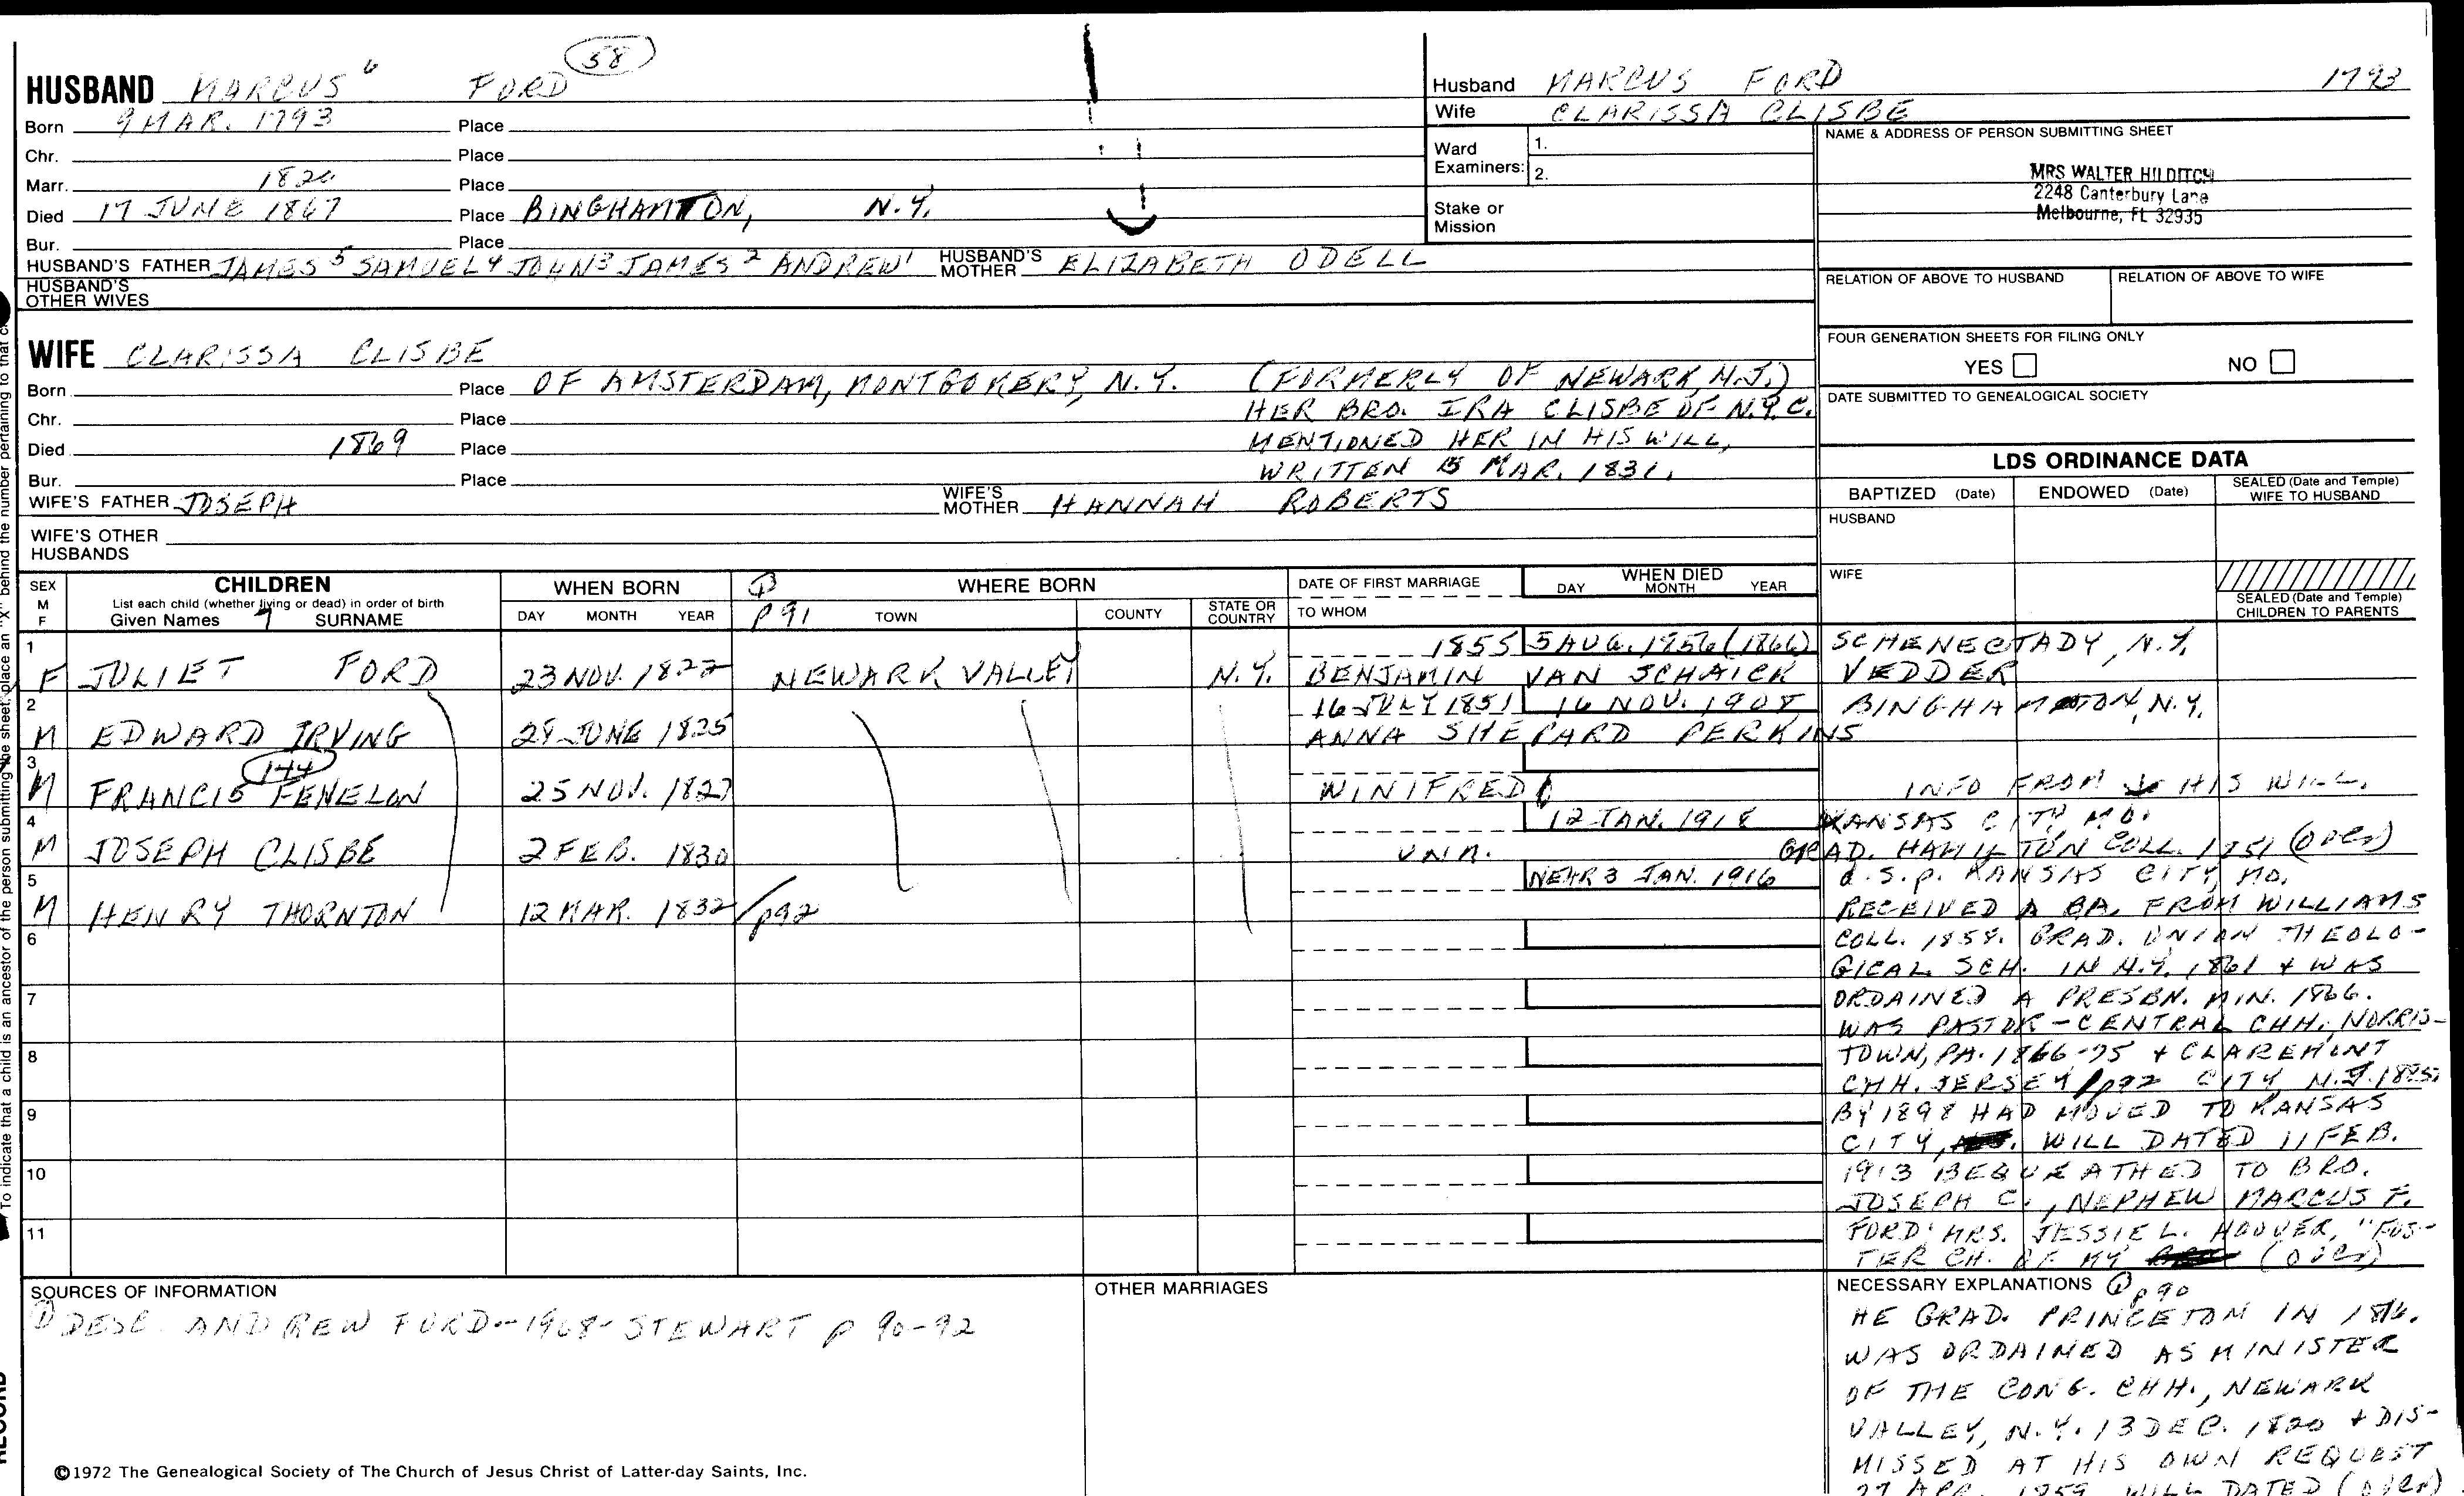 58
HUSBAND MARCUS 6 FORD
Born 9 MAR. 1793 Place
Chr. Place
Marr. Place
Died 17 JUNE 1867 Place BINGHAMTON, N.Y.
Bur. Place
HUSBAND'S FATHER JAMES 5 SAMUEL 4 JOHN 3 JAMES 2 ANDREW 1 HUSBAND'S MOTHER ELIZABETH ODELL
HUSBAND'S OTHER WIVES
Husband MARCUS FORD 1793
Wife CLARISSA CLISBE
Ward Examiners: 1.
2.
Stake or Mission
NAME & ADDRESS OF PERSON SUBMITTING SHEET
MRS WALTER HILDITCH
2248 Canterbury Lane
Melbourne, FL 32935
RELATION OF ABOVE TO HUSBAND RELATION OF ABOVE TO WIFE
FOUR GENERATION SHEETS FOR FILING ONLY
YES NO
DATE SUBMITTED TO GENEALOGICAL SOCIETY
WIFE CLARISSA CLISBE
Born Place OF AMSTERDAM, MONTGOMERY, N.Y. (FORMERLY OF NEWARK, N.J.)
Chr. Place HER BRO. IRA CLISBE OF N.Y.C.
Died 1869 Place MENTIONED HER IN HIS WILL,
Bur. Place WRITTEN 15 MAR. 1831.
WIFE'S FATHER JOSEPH WIFE'S MOTHER HANNAH ROBERTS
WIFE'S OTHER HUSBANDS
LDS ORDINANCE DATA
BAPTIZED (Date) ENDOWED (Date) SEALED (Date and Temple) WIFE TO HUSBAND
HUSBAND
WIFE
SEALED (Date and Temple) CHILDREN TO PARENTS
SEX M F
CHILDREN
List each child (whether living or dead) in order of birth
Given Names SURNAME
WHEN BORN
DAY MONTH YEAR
WHERE BORN
p 91 TOWN COUNTY STATE OR COUNTRY
DATE OF FIRST MARRIAGE
TO WHOM
WHEN DIED
DAY MONTH YEAR
1 1855 5 AUG. 1956 (1866) SCHENECTADY, N.Y.
F JULIET FORD 23 NOV. 1822 NEWARK VALLEY N.Y. BENJAMIN VAN SCHAICK VEDDER
2 16 JULY 1851 16 NOV. 1908 BINGHAMTON, N.Y.
M EDWARD IRVING JUNE 1825 ANNA SHEPARD PERKINS
3 144
M FRANCIS FENELON 25 NOV. 1827 WINIFRED INFO FROM HIS WILL.
4 12 JAN. 1918 KANSAS CITY MO.
M JOSEPH CLISBE 2 FEB. 1830 UNM. GRAD. HAMILTON COLL. 1851 (OVER)
5 NEAR 3 JAN. 1916 d.s.p. KANSAS CITY, MO.
M HENRY THORNTON 12 MAR. 1832 p92 RECEIVED A BA. FROM WILLIAMS
6 COLL. 1858. GRAD. UNION THEOLO-
GICAL SCH. IN N.Y. 1861 + WAS
7 ORDAINED A PRESBN. MIN. 1866.
WAS PASTOR - CENTRAL CHH. NORRIS-
8 TOWN, PA. 1866-75 + CLAREMONT
CHH. JERSEY p92 CITY N.J.
9 BY 1898 HAD MOVED TO KANSAS
CITY, WILL DATED 11 FEB.
10 1913 BEQUEATHED TO BRO.
JOSEPH C., NEPHEW MARCUS F.
11 FORD MRS. JESSIE L. HOOVER, "FOS-
TER CH. OF MY (OVER)
SOURCES OF INFORMATION
① DESC. ANDREW FORD--1968-STEWART p 90-92
OTHER MARRIAGES
NECESSARY EXPLANATIONS ① p 90
HE GRAD. PRINCETON IN
WAS ORDAINED AS MINISTER
OF THE CONG. CHH., NEWARK
VALLEY, N.Y. 13 DEC. 1820 + DIS-
MISSED AT HIS OWN REQUEST
27 APR. 1859 WILL DATED (OVER)
©1972 The Genealogical Society of The Church of Jesus Christ of Latter-day Saints, Inc.
To indicate that a child is an ancestor of the person submitting the sheet, place an "X" behind the number pertaining to that